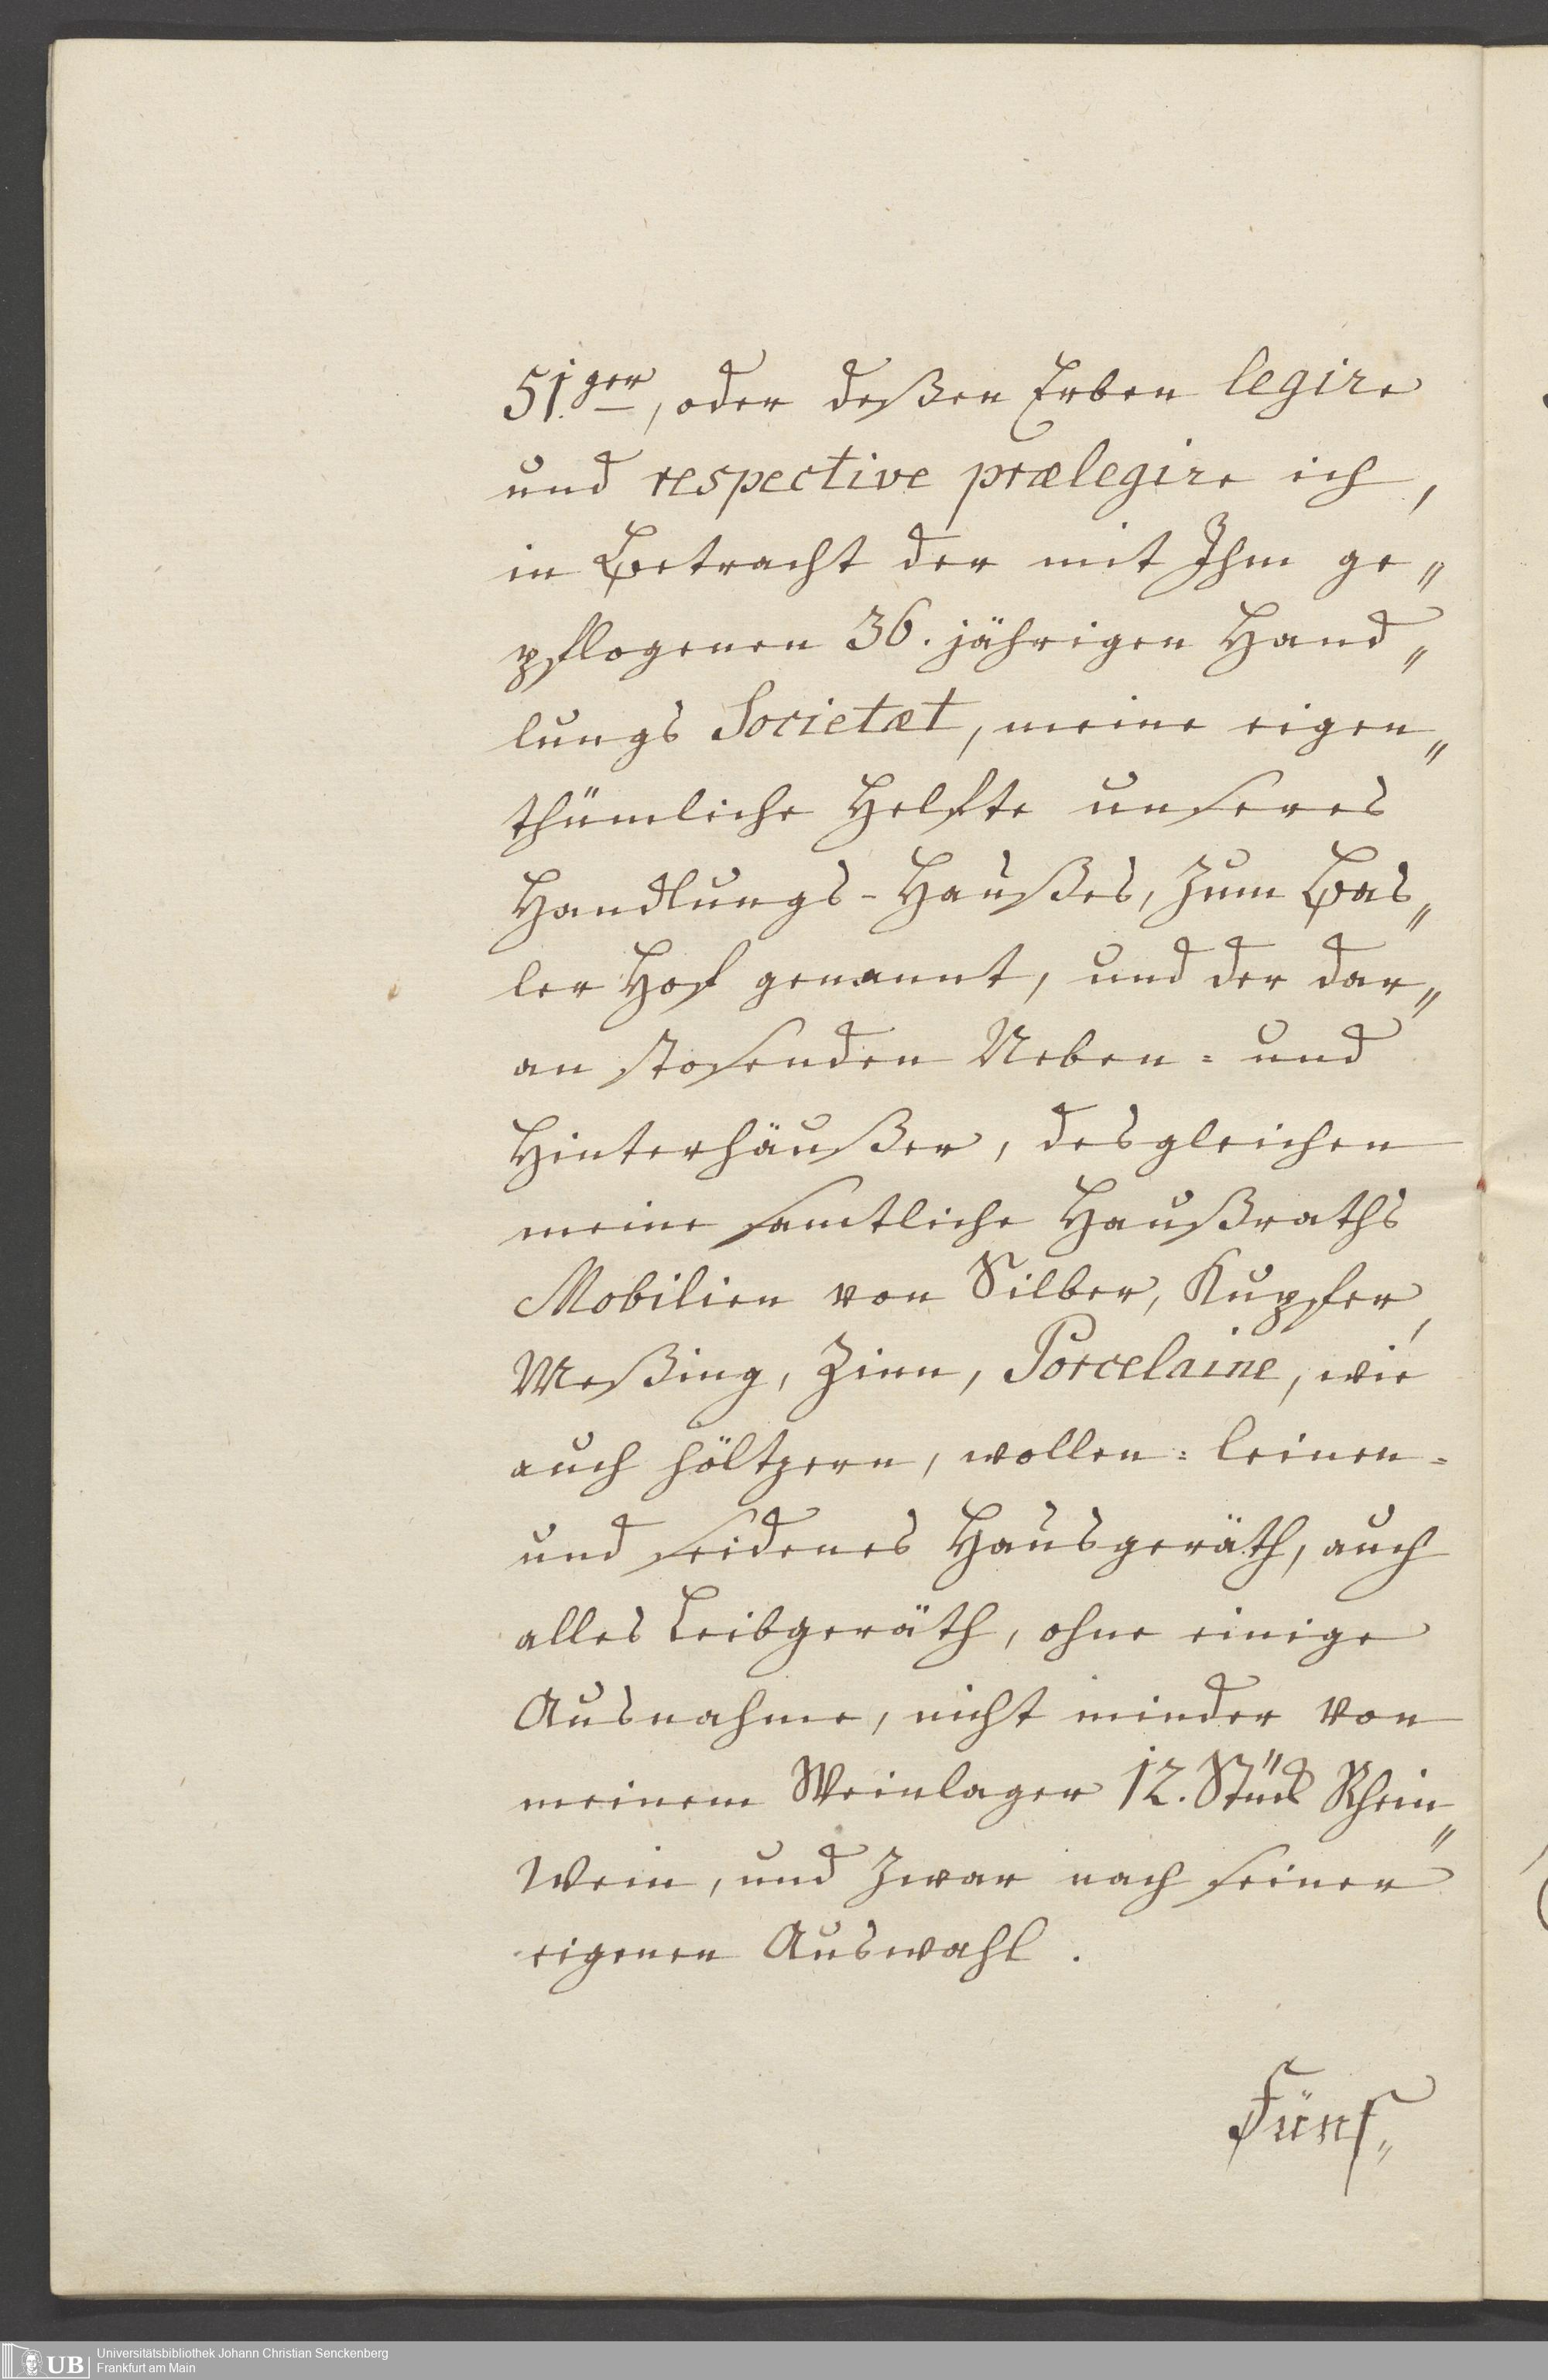 51.ger, oder deßen Erben legire
und respective prælegire ich,
in Betracht der mit Ihm ge„
pflogenen 36. jährigen Hand„
lungs Societæt, meine eigen„
thümliche Helfte unseres
Handlungs-Haußes, zum Bas„
ler Hof genannt, und der dar„
an stosenden Neben= und
Hinterhäußer, desgleichen
meine samtliche Haußraths
Mobilien von Silber, Kupfer,
Meßing, Zinn, Porcelaine, wie
auch höltzern, wollen= leinen=
und seidenes Hausgeräth, auch
alles Leibgeräth, ohne einige
Ausnahme, nicht minder von
meinem Weinlager 12. Stück Rhein„
Wein, und zwar nach seiner
eigenen Auswahl.
Fünf„
UB Universitätsbibliothek Johann Christian Senckenberg
Frankfurt am Main